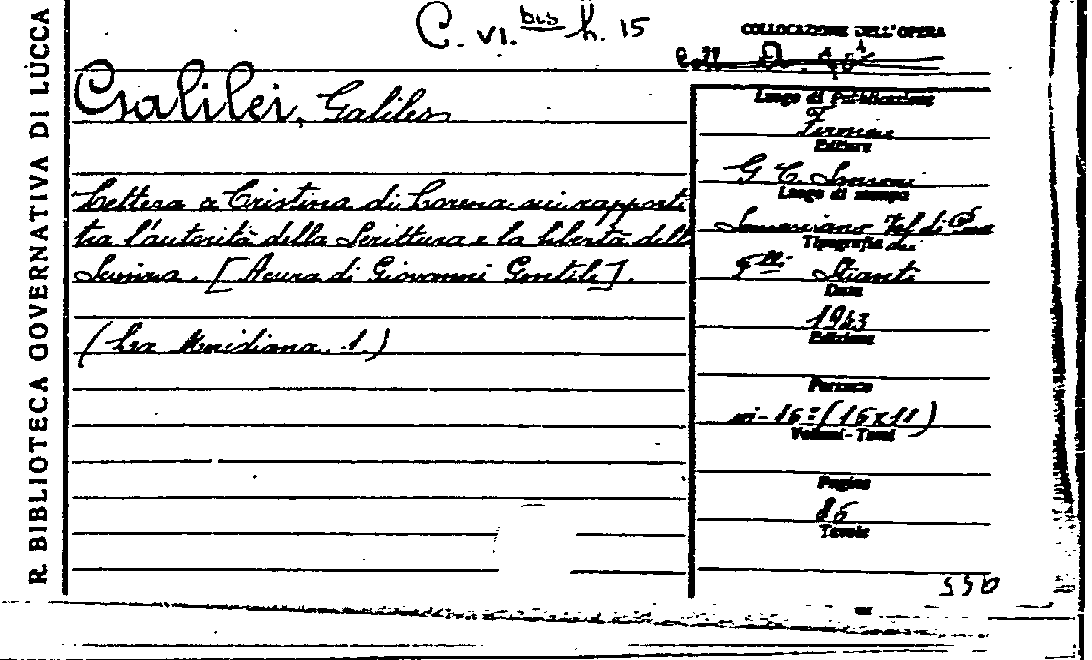 R. BIBLIOTECA GOVERNATIVA DI LUCCA
C. VI. bis h. 15
COLLOCAZIONE DELL'OPERA
Galilei, Galileo
Lettera a Cristina di Lorena sui rapporti
tra l'autorità della Scrittura e la libertà della
Scienza. [A cura di Giovanni Gentile].
(La Meridiana. 1.)
Luogo di Pubblicazione
Firenze
Editore
G. C. Sansoni
Luogo di stampa
Tipografia
Stianti
Data
1943
Edizione
Formato
16° (16x11)
Volumi - Tomi
Pagine
86
Tavole